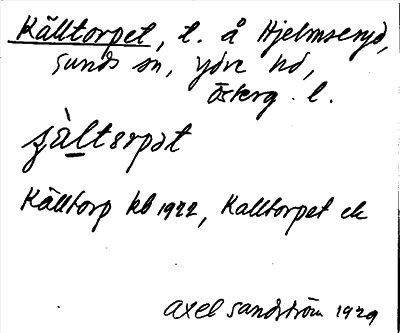 Källtorpet, t. å Hjelmseryd,
Sunds sn, Ydre hd,
Österg. l.
Källtorp kb 1922, Kalltorpet ek
Axel Sandström 1929